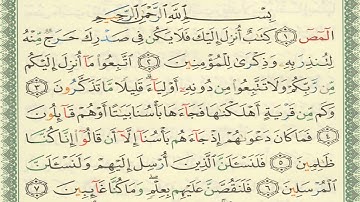 بِسْمِ اللَّهِ الرَّحْمَٰنِ الرَّحِيمِ
الٓمٓصٓ ١ كِتَٰبٌ أُنزِلَ إِلَيْكَ فَلَا يَكُن فِي صَدْرِكَ حَرَجٌ مِّنْهُ
لِتُنذِرَ بِهِۦ وَذِكْرَىٰ لِلْمُؤْمِنِينَ ٢ ٱتَّبِعُوا۟ مَآ أُنزِلَ إِلَيْكُم
مِّن رَّبِّكُمْ وَلَا تَتَّبِعُوا۟ مِن دُونِهِۦٓ أَوْلِيَآءَ قَلِيلًا مَّا تَذَكَّرُونَ ٣
وَكَم مِّن قَرْيَةٍ أَهْلَكْنَٰهَا فَجَآءَهَا بَأْسُنَا بَيَٰتًا أَوْ هُمْ قَآئِلُونَ ٤
فَمَا كَانَ دَعْوَىٰهُمْ إِذْ جَآءَهُم بَأْسُنَآ إِلَّآ أَن قَالُوٓا۟ إِنَّا كُنَّا
ظَٰلِمِينَ ٥ فَلَنَسْـَٔلَنَّ ٱلَّذِينَ أُرْسِلَ إِلَيْهِمْ وَلَنَسْـَٔلَنَّ
ٱلْمُرْسَلِينَ ٦ فَلَنَقُصَّنَّ عَلَيْهِم بِعِلْمٍ وَمَا كُنَّا غَآئِبِينَ ٧